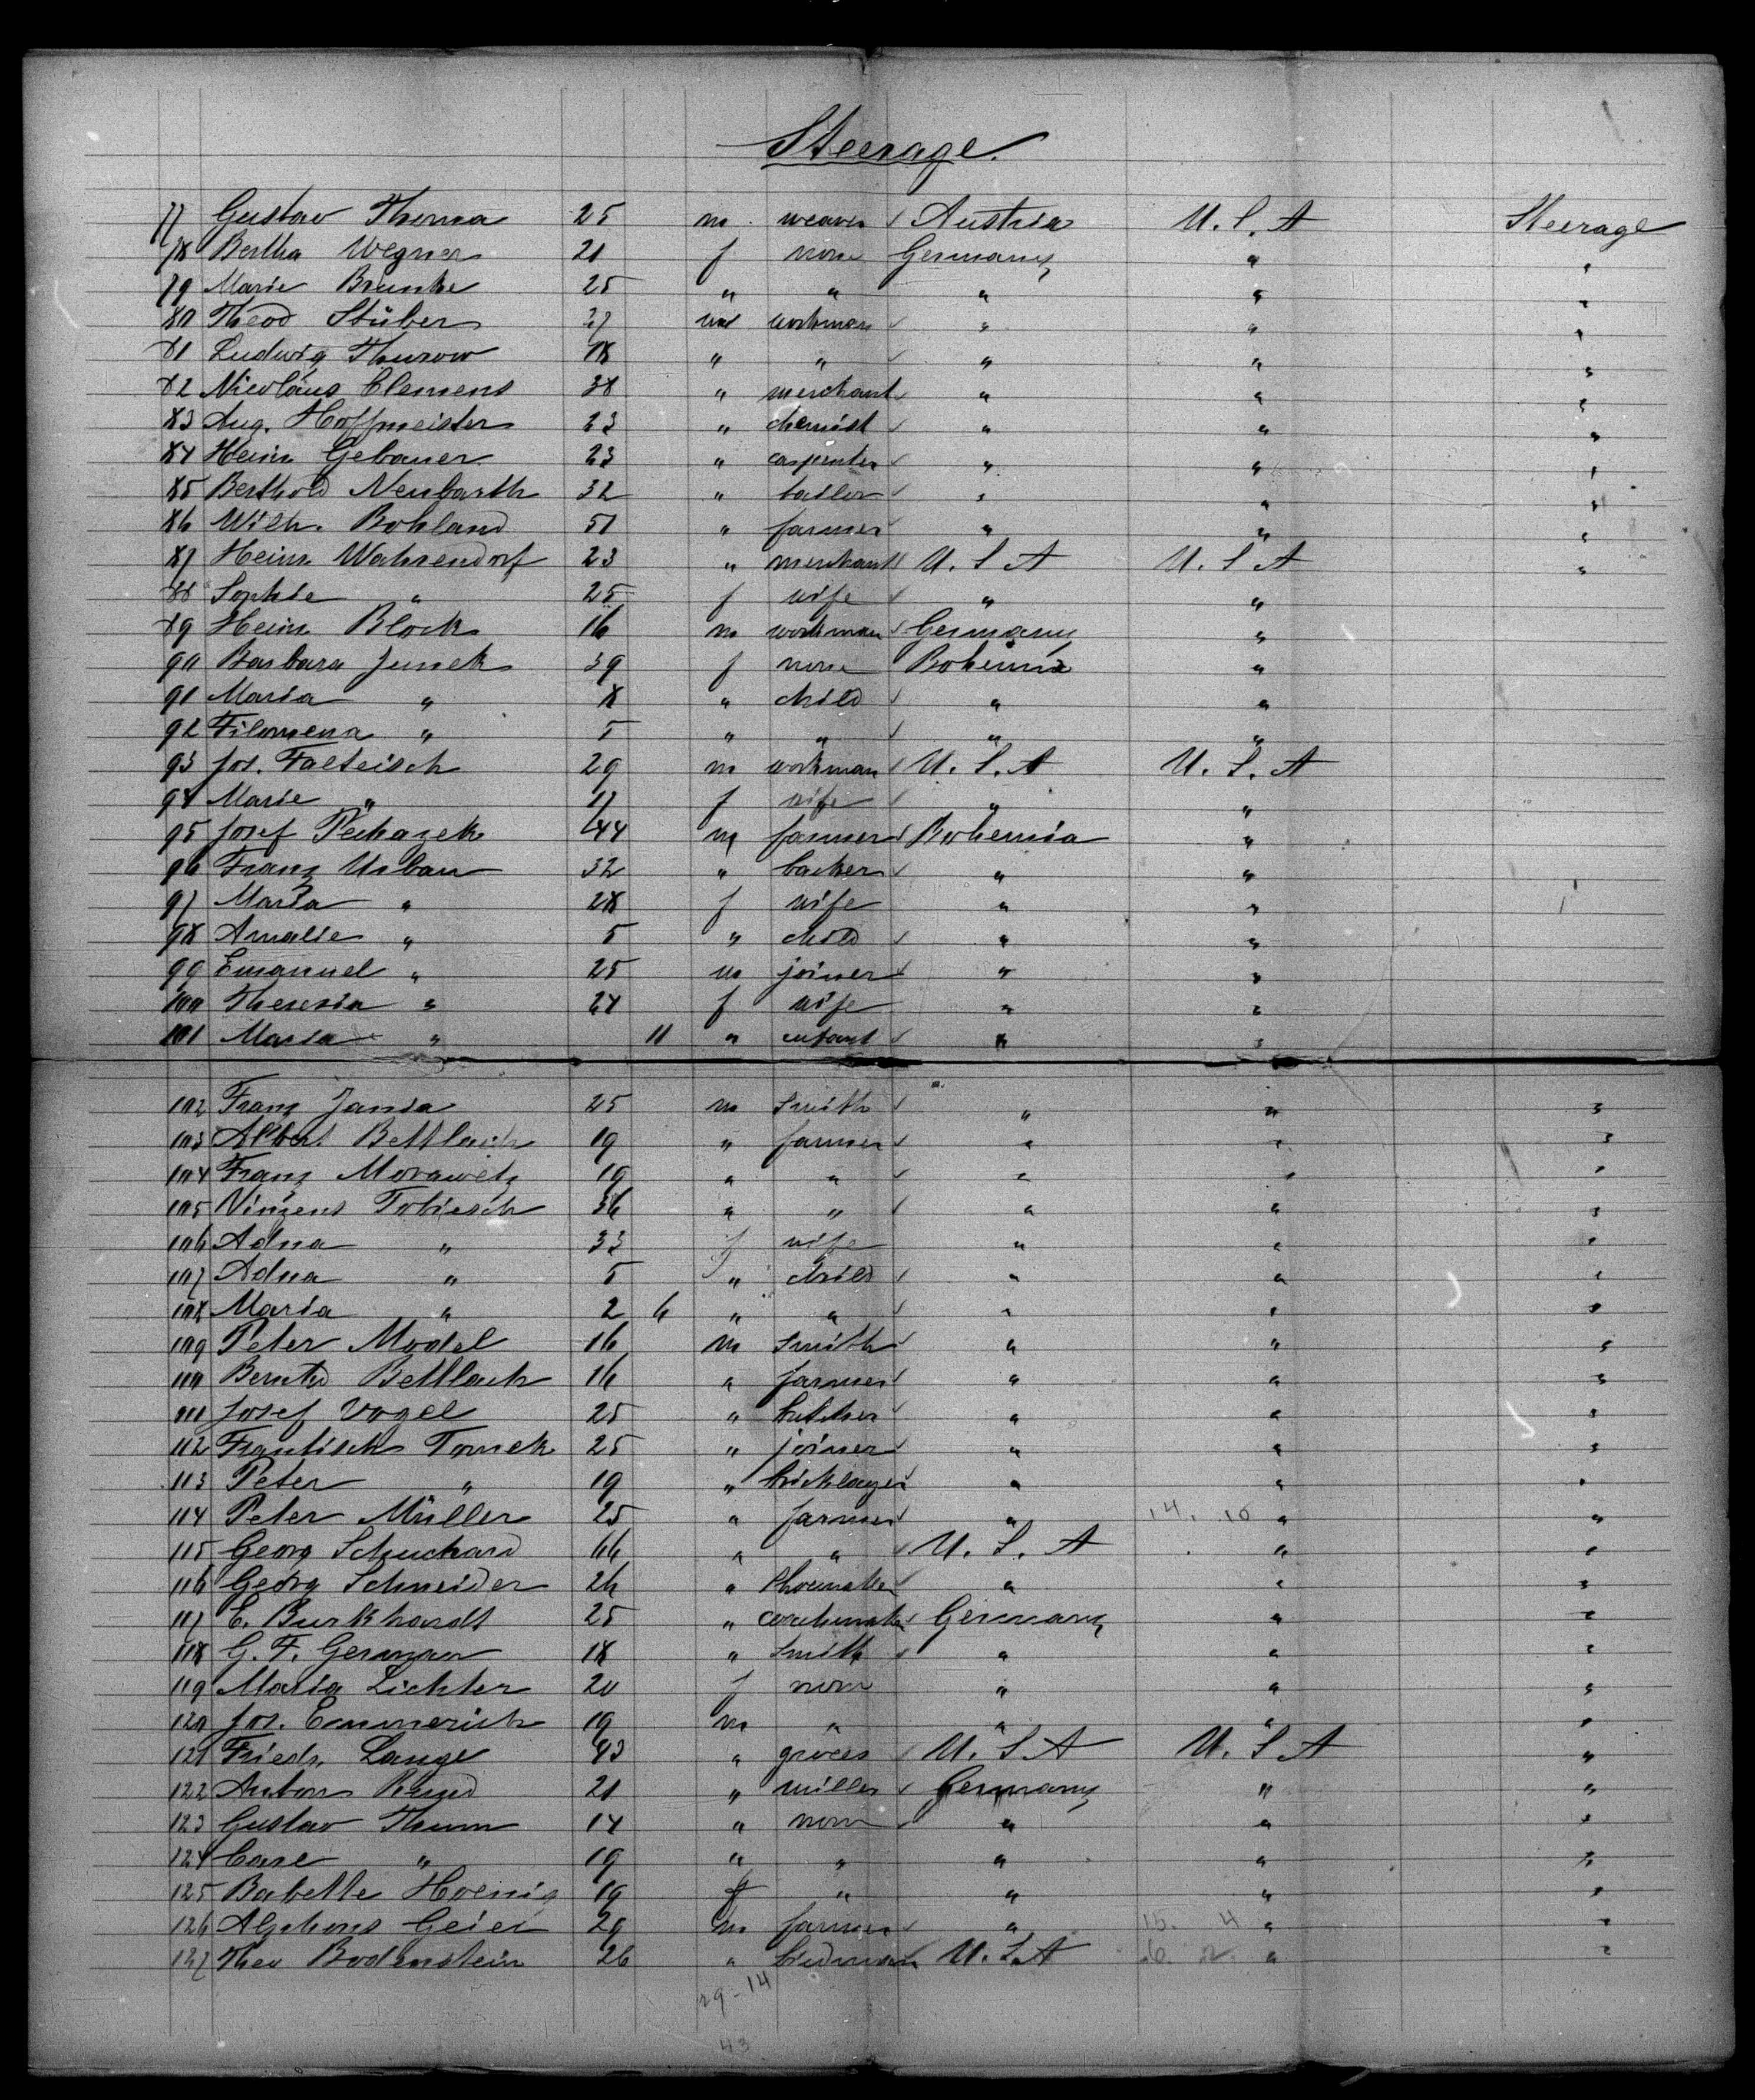 Steerage.
77 Gustav Thoma 25 m weaver Austria U.S.A Steerage
78 Bertha Wegner 21 f none Germany " "
79 Marie Brunke 25 " " " " "
80 Theod Stüber 27 m workman " " "
81 Ludwig Thurow 18 " " " " "
82 Nicolaus Clemens 38 " merchant " " "
83 Aug. Hoffmeister 23 " chemist " " "
84 Heinr Gebauer 23 " carpenter " " "
85 Berthold Neubarth 32 " tailor " " "
86 Wilh. Bohland 51 " farmer " " "
87 Heinr Wahrendorf 23 " merchant U.S A U.S A "
88 Sophie " 25 f wife " "
89 Heinr Block 16 m workman Germany "
90 Barbara Junek 39 f none Bohemia "
91 Maria " 8 " child " "
92 Filomena " 5 " " " "
93 Jos. Falteisch 29 m workman U.S.A U.S.A
94 Marie " 17 f wife " "
95 Josef Pechazek 44 m farmer Bohemia "
96 Franz Urban 32 " backer " "
97 Maria " 28 f wife " "
98 Amalie " 5 " child " "
99 Emanuel " 25 m joiner " "
100 Theresia " 24 f wife " "
101 Maria " 11 " infant " "
102 Franz Jansa 25 m Smith " " "
103 Albert Bettlach 19 " farmer " " "
104 Franz Morawetz 19 " " " " "
105 Vinzens Tobiesch 36 " " " " "
106 Adna " 33 f wife " " "
107 Adna " 5 " child " " "
108 Maria " 2 6 " " " " "
109 Peter Model 16 m Smith " " "
110 Bernhd Bettlach 16 " farmer " " "
111 Josef Vogel 25 " butcher " " "
112 Frantisek Tomek 25 " joiner " " "
113 Peter " 19 " bricklayer " " "
114 Peter Müller 25 " farmer " 14. 10 " "
115 Georg Schuchard 66 " " U.S.A " "
116 Georg Schneider 26 " Shoemaker " " "
117 C. Burkhardt 25 " Germany " "
118 G. F. German 18 " Smith " " "
119 Maria Lichter 20 f none " " "
120 Jos. Emmerich 19 m " " " "
121 Friedr. Lange 43 " grocer U.S A U.S A "
122 Anton 21 " miller Germany " "
123 Gustav Thum 14 " none " " "
124 Carl " 19 " " " " "
125 Babette Hoenig 19 f " " " "
126 Alphons Geier 29 m farmer " 16. 4 " "
127 Theo Bodenstein 26 " U.S.A " "
29-14
43